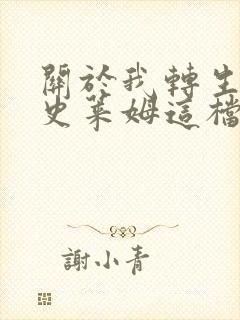 關於我轉生
史萊姆這檔
謝小青